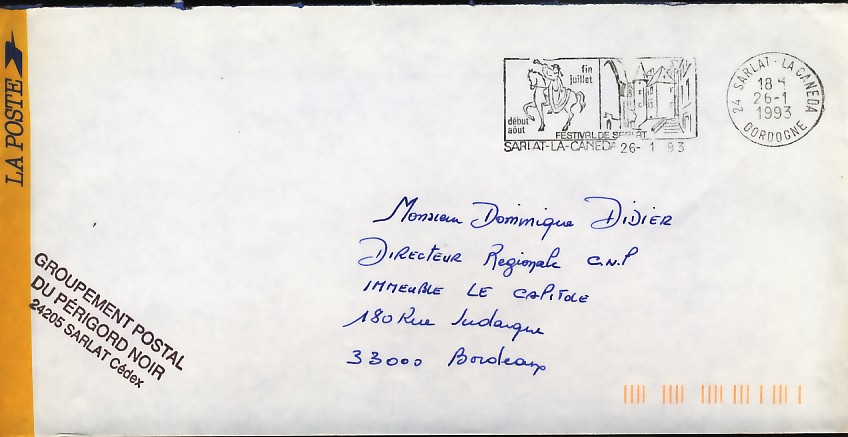 LA POSTE
fin
juillet
début
août
FESTIVAL DE SARLAT
SARLAT-LA-CANEDA 26- 1 93
24 SARLAT - LA CANEDA
18 H
26-1
1993
DORDOGNE
Monsieur Dominique DIDIER
DIRECTEUR Regionale C.N.P
IMMEUBLE LE CAPITOLE
180 Rue Judaique
33000 Bordeaux
GROUPEMENT POSTAL
DU PÉRIGORD NOIR
24205 SARLAT Cédex